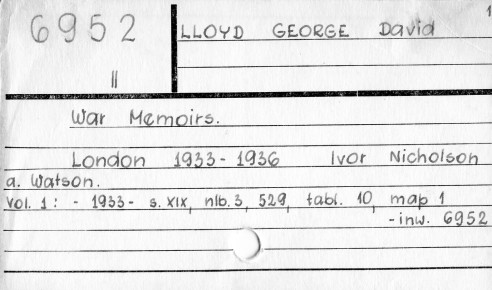 1
6952 LLOYD GEORGE David
II
War Memoirs.
London 1933-1936 Ivor Nicholson
a. Watson.
Vol. 1: - 1933 - s. XIX, nlb. 3, 529, tabl. 10, map 1
- inw. 6952